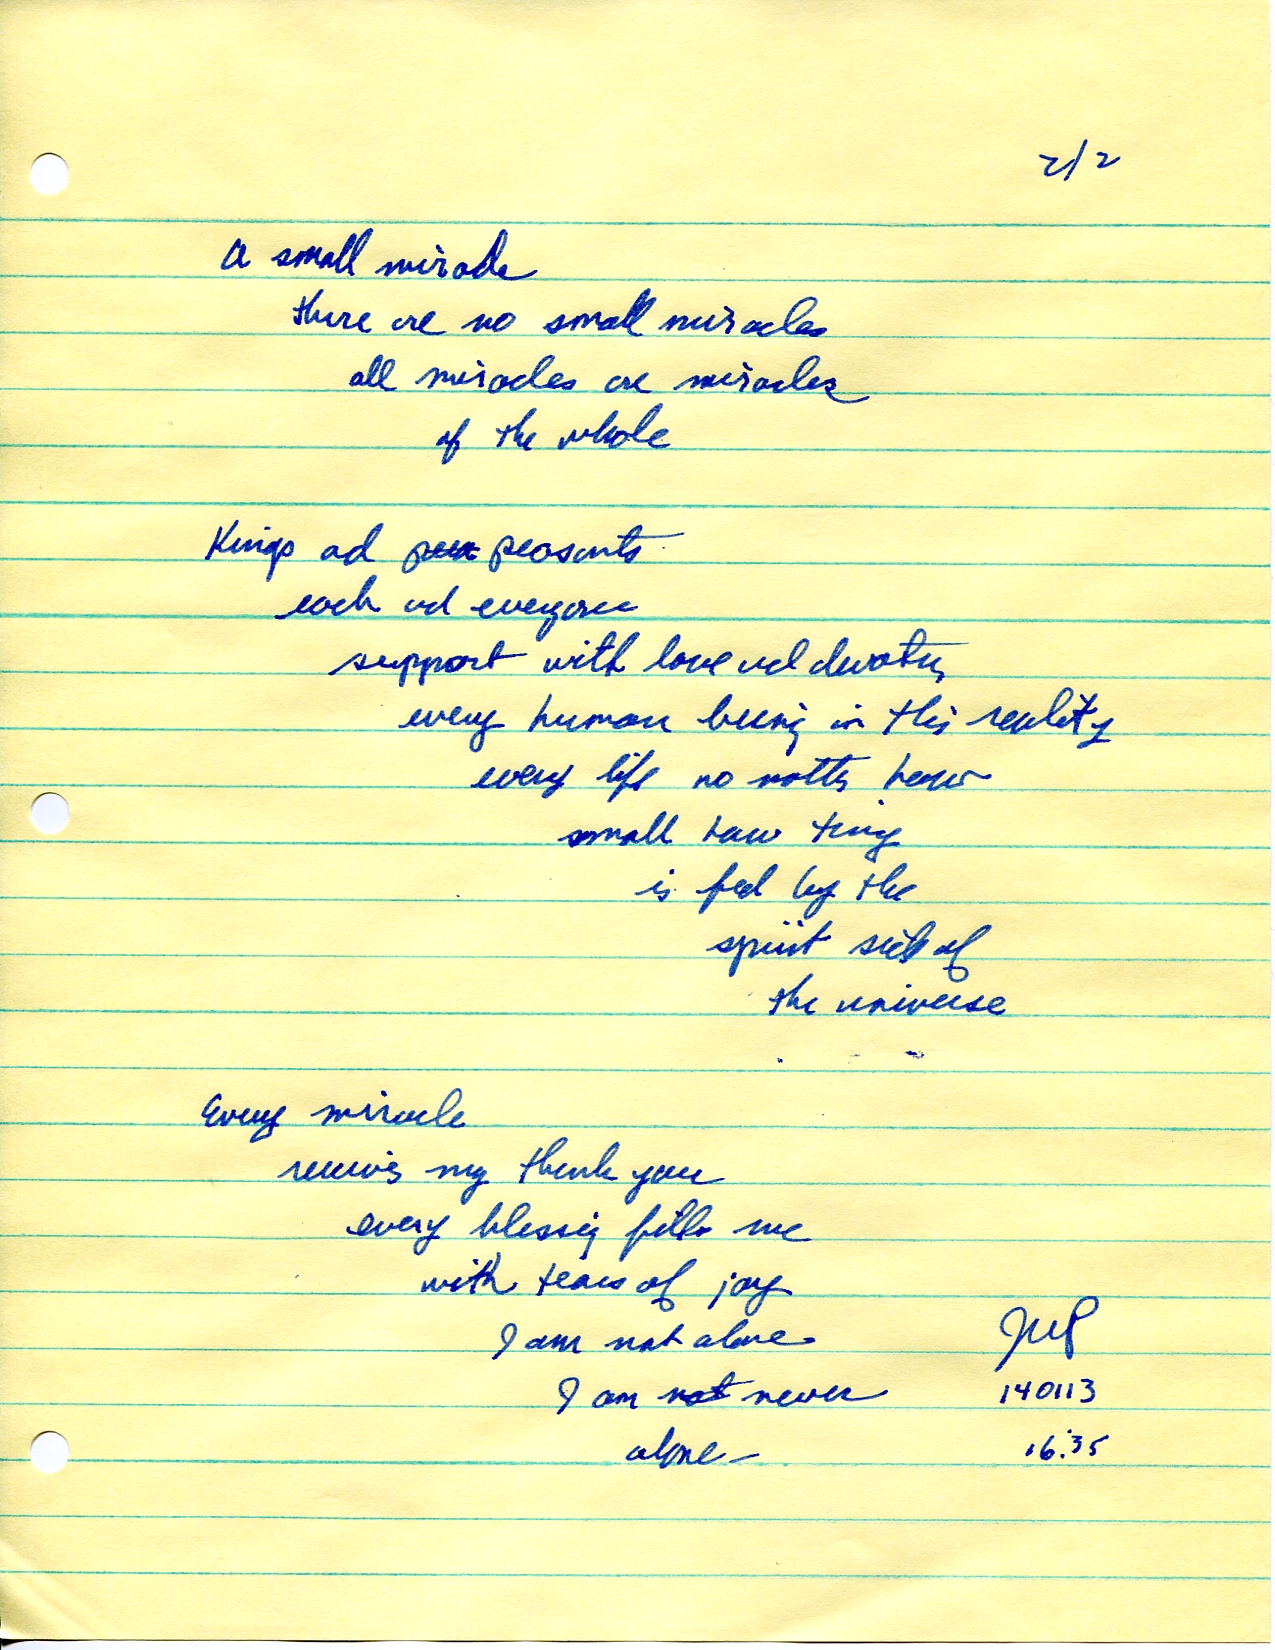 2/2
A small miracle
there are no small miracles
all miracles are miracles
of the whole
Kings and peasants
each and everyone
support with love and devotion
every human being in this reality
every life no matter how
small how tiny
is fed by the
spirit side of
the universe
Every miracle
receives my thank you
every blessing fills me
with tears of joy
I am not alone
I am not never
alone
140113
16:35